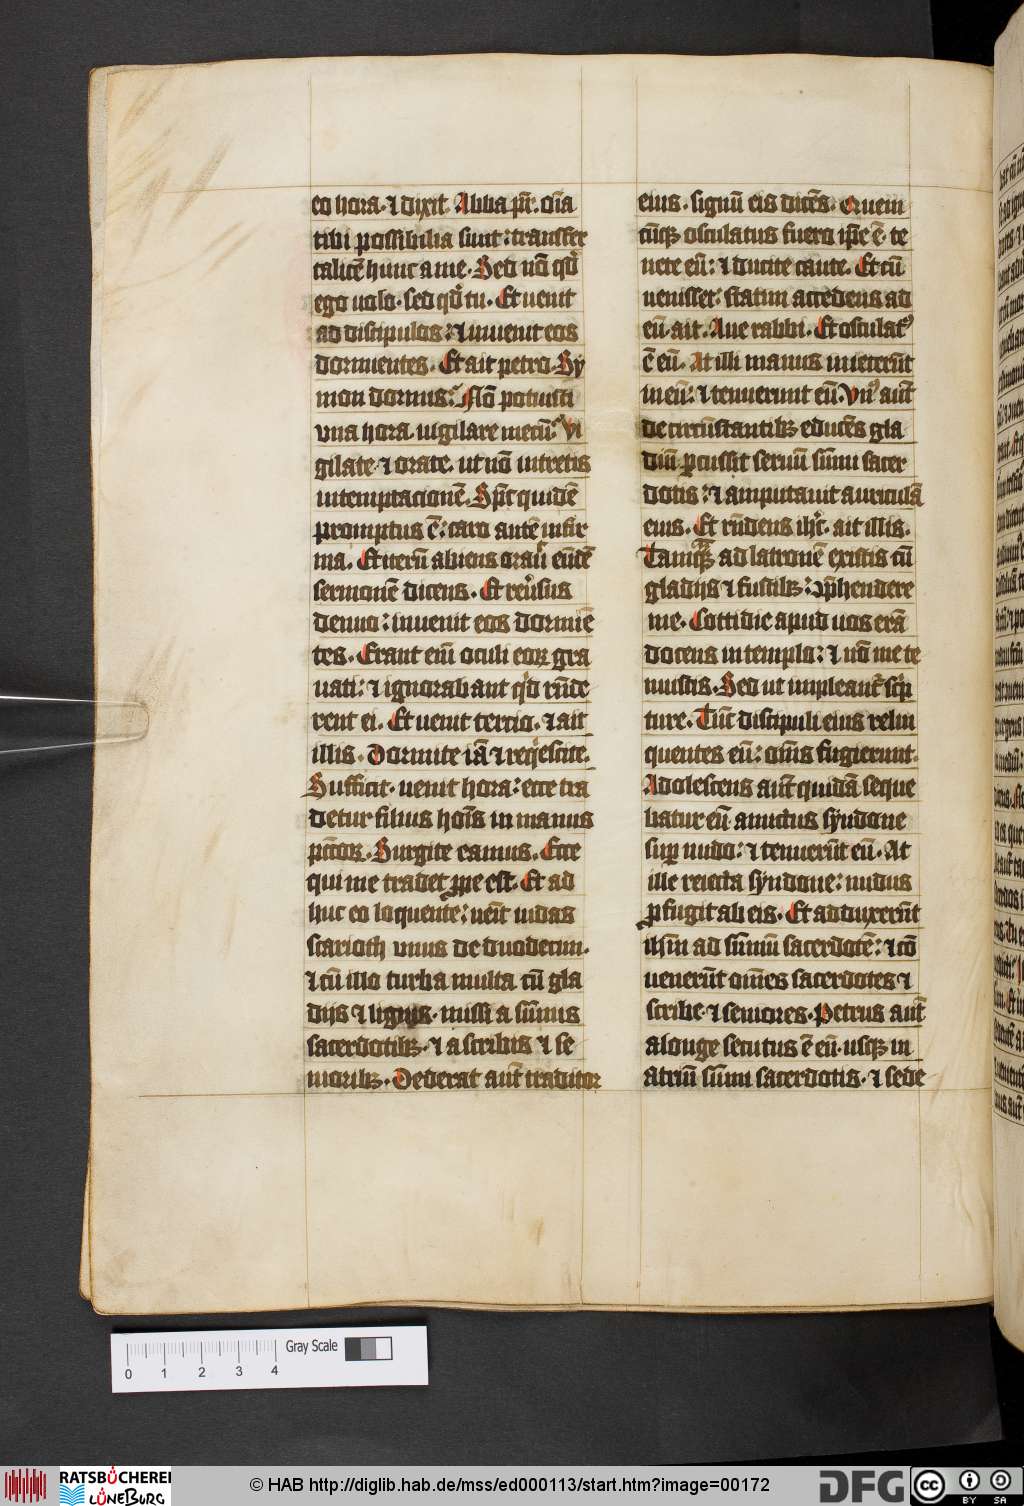 eo hora · ⁊ dixit Abba pr̄ · oīa
tibi possibilia sunt : transfer
calicē hunc a me · Sed nō qd̕
ego uolo · sed qd̕ tu · Et uenit
ad discipulos : ⁊ inuenit eos
dormientes · Et ait petro · Sy
mon dormis : Nō potuisti
vna hora uigilare mecū · Vi
gilate · ⁊ orate · ut nō intretis
intemptacionē · Spc̄ quidē
promptus ē : caro autē infir
ma · Et iterū abiens orau̕ eūdē
sermonē dicens · Et reu̕sus
denuo : inuenit eos dormiē
tes · Erant eim̄ oculi eoꝝ gra
uati : ⁊ ignorabant qd̕ rn̄de
rent ei · Et uenit tercio · ⁊ ait
illis · Dormite iā ⁊ reqͥescite ·
Sufficit · uenit hora : ecce tra
detur filius hoīs in manus
pcc̄oꝝ · Surgite eamus · Ecce
qui me tradet ꝓpe est · Et ad
huc eo loquente : ueīt iudas
scarioth vnus de duodecim ·
⁊ cū illo turba multa cū gla
dijs ⁊ lignis · missi a sūmis
sacerdotibꝫ · ⁊ a scribis ⁊ se
nioribꝫ · Dederat aut̄ traditor
eius · signū eis dicēs · Quem
cūqꝫ osculatus fuero ip̄e ē · te
nete eū : ⁊ ducite caute · Et cū
uenisset : statim accedens ad
eū · ait · Aue rabbi · Et osculatꝰ
ē eū · At illi manus iniecerūt
in eū : ⁊ tenuerunt eū · Vnꝰ aut̄
de circūstantibꝫ educēs gla
diū ꝑcussit seruū sūmi sacer
dotis : ⁊ amputauit auriculā
eius · Et rn̄dens ihc̄ · ait illis ·
Tamqꝫ ad latronē existis cū
gladijs ⁊ fustibꝫ : ꝯp̄hendere
me · Cottidie apud uos erā
docens in templo : ⁊ nō me te
nuistis · Sed ut impleant̄ sc̕p
ture · Tūc discipuli eius relin
quentes eū : om̄s fugierunt ·
Adolescens aut̄ quidā seque
batur eū · amictus syndone
suꝑ nudo : ⁊ tenuerūt eū · At
ille reiecta syndone : nudus
ꝓfugit ab eis · Et adduxerūt
ihm̄ ad sūmū sacerdotē : ⁊ cō
uenerūt om̄es sacerdotes ⁊
scribe · ⁊ seniores · Petrus aut̄
a longe secutus ē eū · usqꝫ in
atriū sūmi sacerdotis · ⁊ sede
0 1 2 3 4
Gray Scale
RATSBÜCHEREI
LÜNEBURG
© HAB http://diglib.hab.de/mss/ed000113/start.htm?image=00172
DFG
cc BY SA